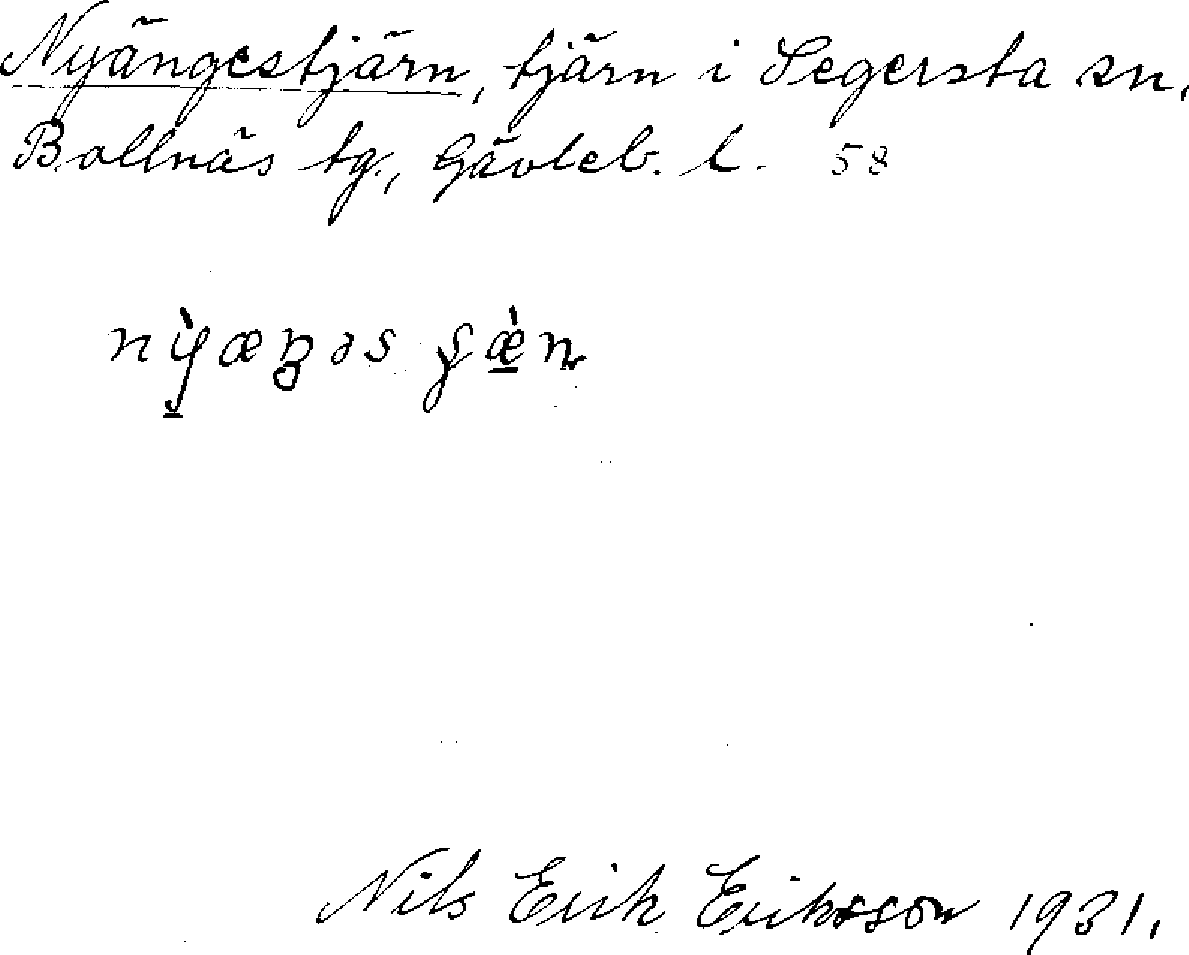 Nyängestjärn, tjärn i Segersta sn,
Bollnäs tg., Gävleb. l. 58
Nils Erik Eriksson 1931.